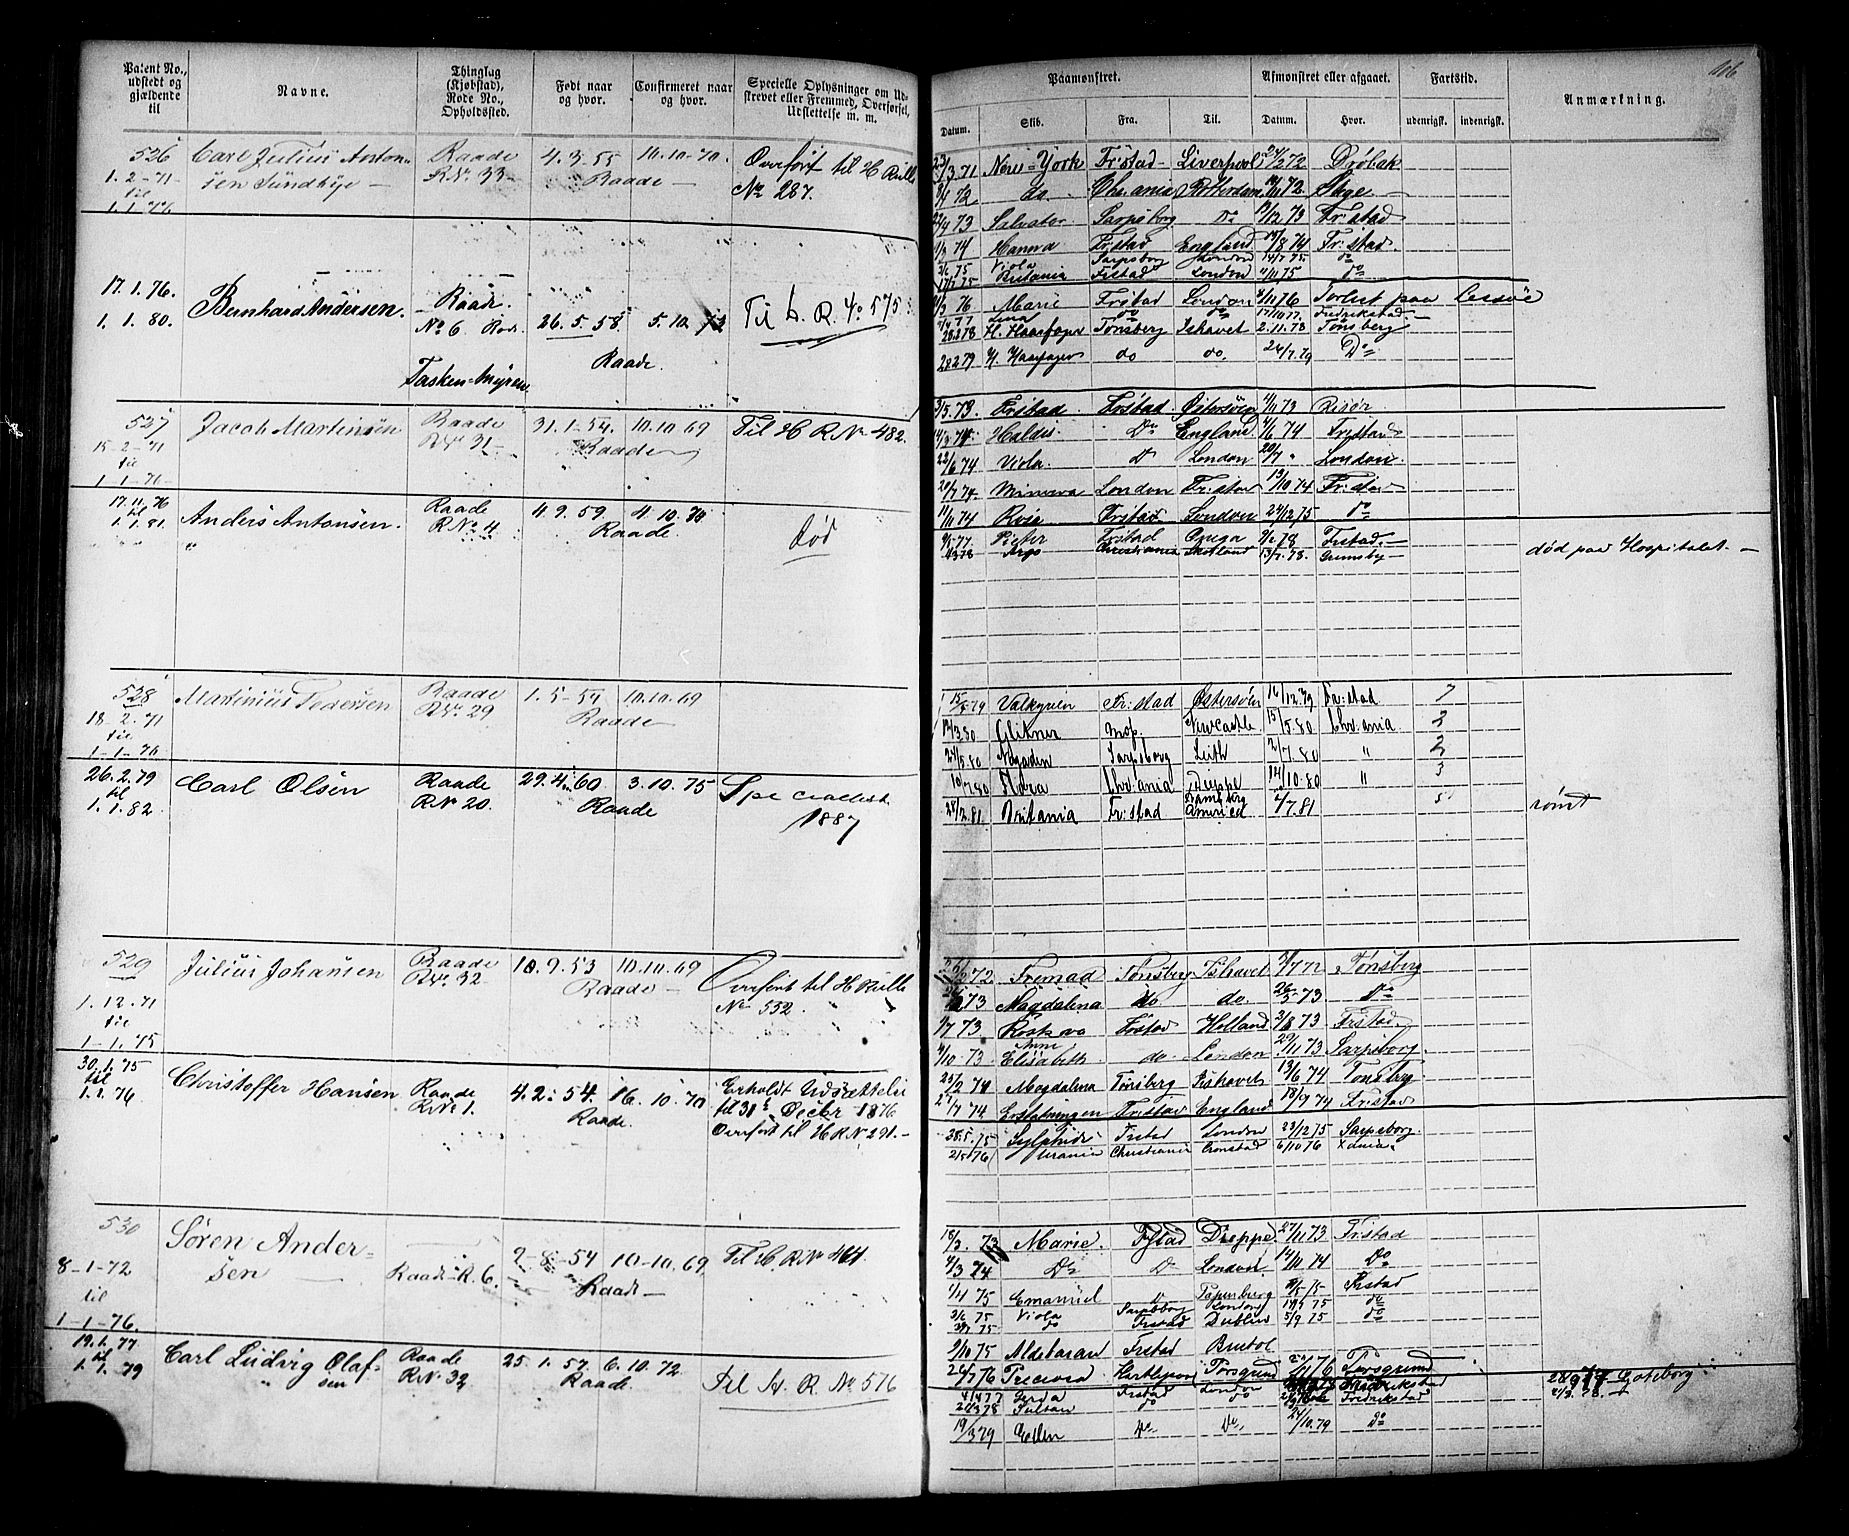 Patent No., udstedt og gjældende til
Navne.
Thinglag (Kjøbstad), Rode No., Opholdssted.
Født naar og hvor.
Confirmeret naar og hvor.
Specielle Oplysninger om Udskrevet eller Fremmed, Overførsel, Udslettelse m. m.
526 Carl Julius Anton- Raade 4.3-55 10.10-70. Overført til H Rulle
1.2-71 sen Sundbye — R.No 33- Raade — No 287.
til
1.1-76
17.1.76. Bernhard Andersen. Raade.
1.1.80. No 6 Rode. 26.5.58. 5.10.72 Til h. R. No 575
Raade.
Tasken-Myren
527 Jacob Martinsen Raade 31.1-54. 10.10 69 Til H R No 482.
15-2-71 R.No 31- Raade
til
1-1-76
17.11.76 Anders Antonsen. Raade 4.9.59. 4.10.74
til R No 4 Raade. død
1.1.81.
528 Martinius Pedersen Raade 1.5-54 10.10.69
18-2-71 R.No 29 Raade
til
1-1-76
26.2.79 Carl Olsen Raade 29.4.60 3.10.75
til R No 20. Raade
1.1.82 1887
529 Julius Johansen Raade 10.9.53 10.10.69 Overført til H Rulle
R.No 32 Raade — No 532.
1.12.71
til
1-1.75
30.1.75 Christoffer Hansen Raade 4.2.54. 16.10.70 Erholdt Udslettelse
til R No 1. Raade. til 31 Decbr 1876
1.1.76 Overført til H R No 291.-
530 Søren Ander- 2-8-54 10-10.69. Til H. R No 464.
8-1-72 sen Raade R. 6. Raade —
til
1-1-76.
19.1.77 Carl Ludvig Olaf- Raade 25.1.57. 6.10.72
til sen R No 32 Raade. Til H. R. No 576
1.1.79
106
Paamønstret. Afmønstret eller afgaaet. Fartstid. Anmærkning.
Datum. Skib. Fra. Til. Datum. Hvor. udenrigsk. indenrigsk.
23/3 71 New-York Fr:stad- Liverpool 24/2 72 Drøbak
3/4 72 do. Chr.ania Rotterdam /11 72
22/4 73 Salvator Sarpsborg Do /12 73 Fr:stad
/3 74 Hanna Fr.stad England /8 74 Fr:stad.
2/6 75 Viola Sarpsborg London 14/7 75 do
17/7 75 Britania Frstad London 4/11 75 do
/3 76 Marie Frstad London /11 76 Forlist paa Lessøe
/4 77 Lina do do 17/10 77. Fredrikstad-
28.2 78 H. Haarfager Tønsberg Ishavet 2.11.78 Tønsberg
28 2 79 H. Haarfager do do. 24/7.79 Do
3/5.73. Frstad. Frstad. Østersøen /11 73 Risør
14/3 74 Haldis Do England. /6 74 Frstad
22/6 74 Viola. Do London 20/7 " London.
20/7 74. Minerva London Fr:stad 19/10 74 Fr:stad
11/11 74 Rosa Frstad London 24/12 75 do
/5.77 Pieter Frstad Onega /6 78 Frstad.-
4.3 78 Argo Christiania Skotland 13/7.78. Grimsby- død paa Hospitalet.-
15/8 79 Valkyrien Fr:stad Østersøen 16/12.79 Fr:stad 7
17/3 80 Glitner Mos. Newcastle 15/5.80 Chr:ania 2
24/5.80 Najaden Sarpsborg Leith 2/7.80 " 2
10/7 80 Flora Chr.ania Dieppe 14/10.80 " 3
28/2.81. Britania Fr:stad Americ 2/7.81 5 rømt
72 Fremad Tønsberg Ishavet /7 72 Tønsberg
73 Magdalena do do. 26/5 73 Do
/7 73 Frstad Holland 2/8 73 Frstad.
/10 73 Anne Elisabeth do London 29/11 73 Sarpsborg.
25/2 74 Magdalena Tønsberg Ishavet 13/6 74 Tønsberg
27/7 74 Erstatningen Frstad England 18/9 74 Frstad
28.5.75 Sylphide Frstad London 23/12 75 Sarpsborg.
2/5 76 Urania Christiania Cronstad 6/10 76 Xania.
18/3.73 Marie. Frstad Dieppe. 27/11 73 Frstad
4/3 74 Do Do London 14/11 74 Do
1/4 75 Emanuel Do Papenberg /5 75 Frstad
3/6 75 Viola Sarpsborg London 19/7 75 do
75 do Frstad Dublin 5/9 75 do
9/10 75 Aldebaran Frstad Bristol
24/7 76 Preciosa Hartlepool Porsgrund 76 Porsgrund
4/4 77 Gerda Frstad London Fredrikstad 28/9 77 Goteborg
2/4 78 Sultan do do Fredrikstad /3.78.-
19/3 79 Ellen Do Do 24/10.79 Do